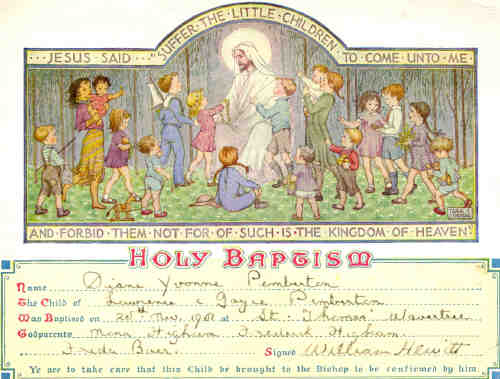 SUFFER·THE·LITTLE·CHILDREN
...JESUS SAID... TO·COME·UNTO·ME
AND·FORBID·THEM·NOT·FOR·OF·SUCH·IS·THE·KINGDOM·OF·HEAVEN
HOLY BAPTISM
Name Diane Yvonne Pemberton
The Child of Lawrence & Joyce Pemberton
Was Baptised on 20th Nov. at St. Thomas' Wavertree
Godparents Mona Higham Frederick Higham
Freda Signed William Hewitt
Ye are to take care that this Child be brought to the Bishop to be confirmed by him.